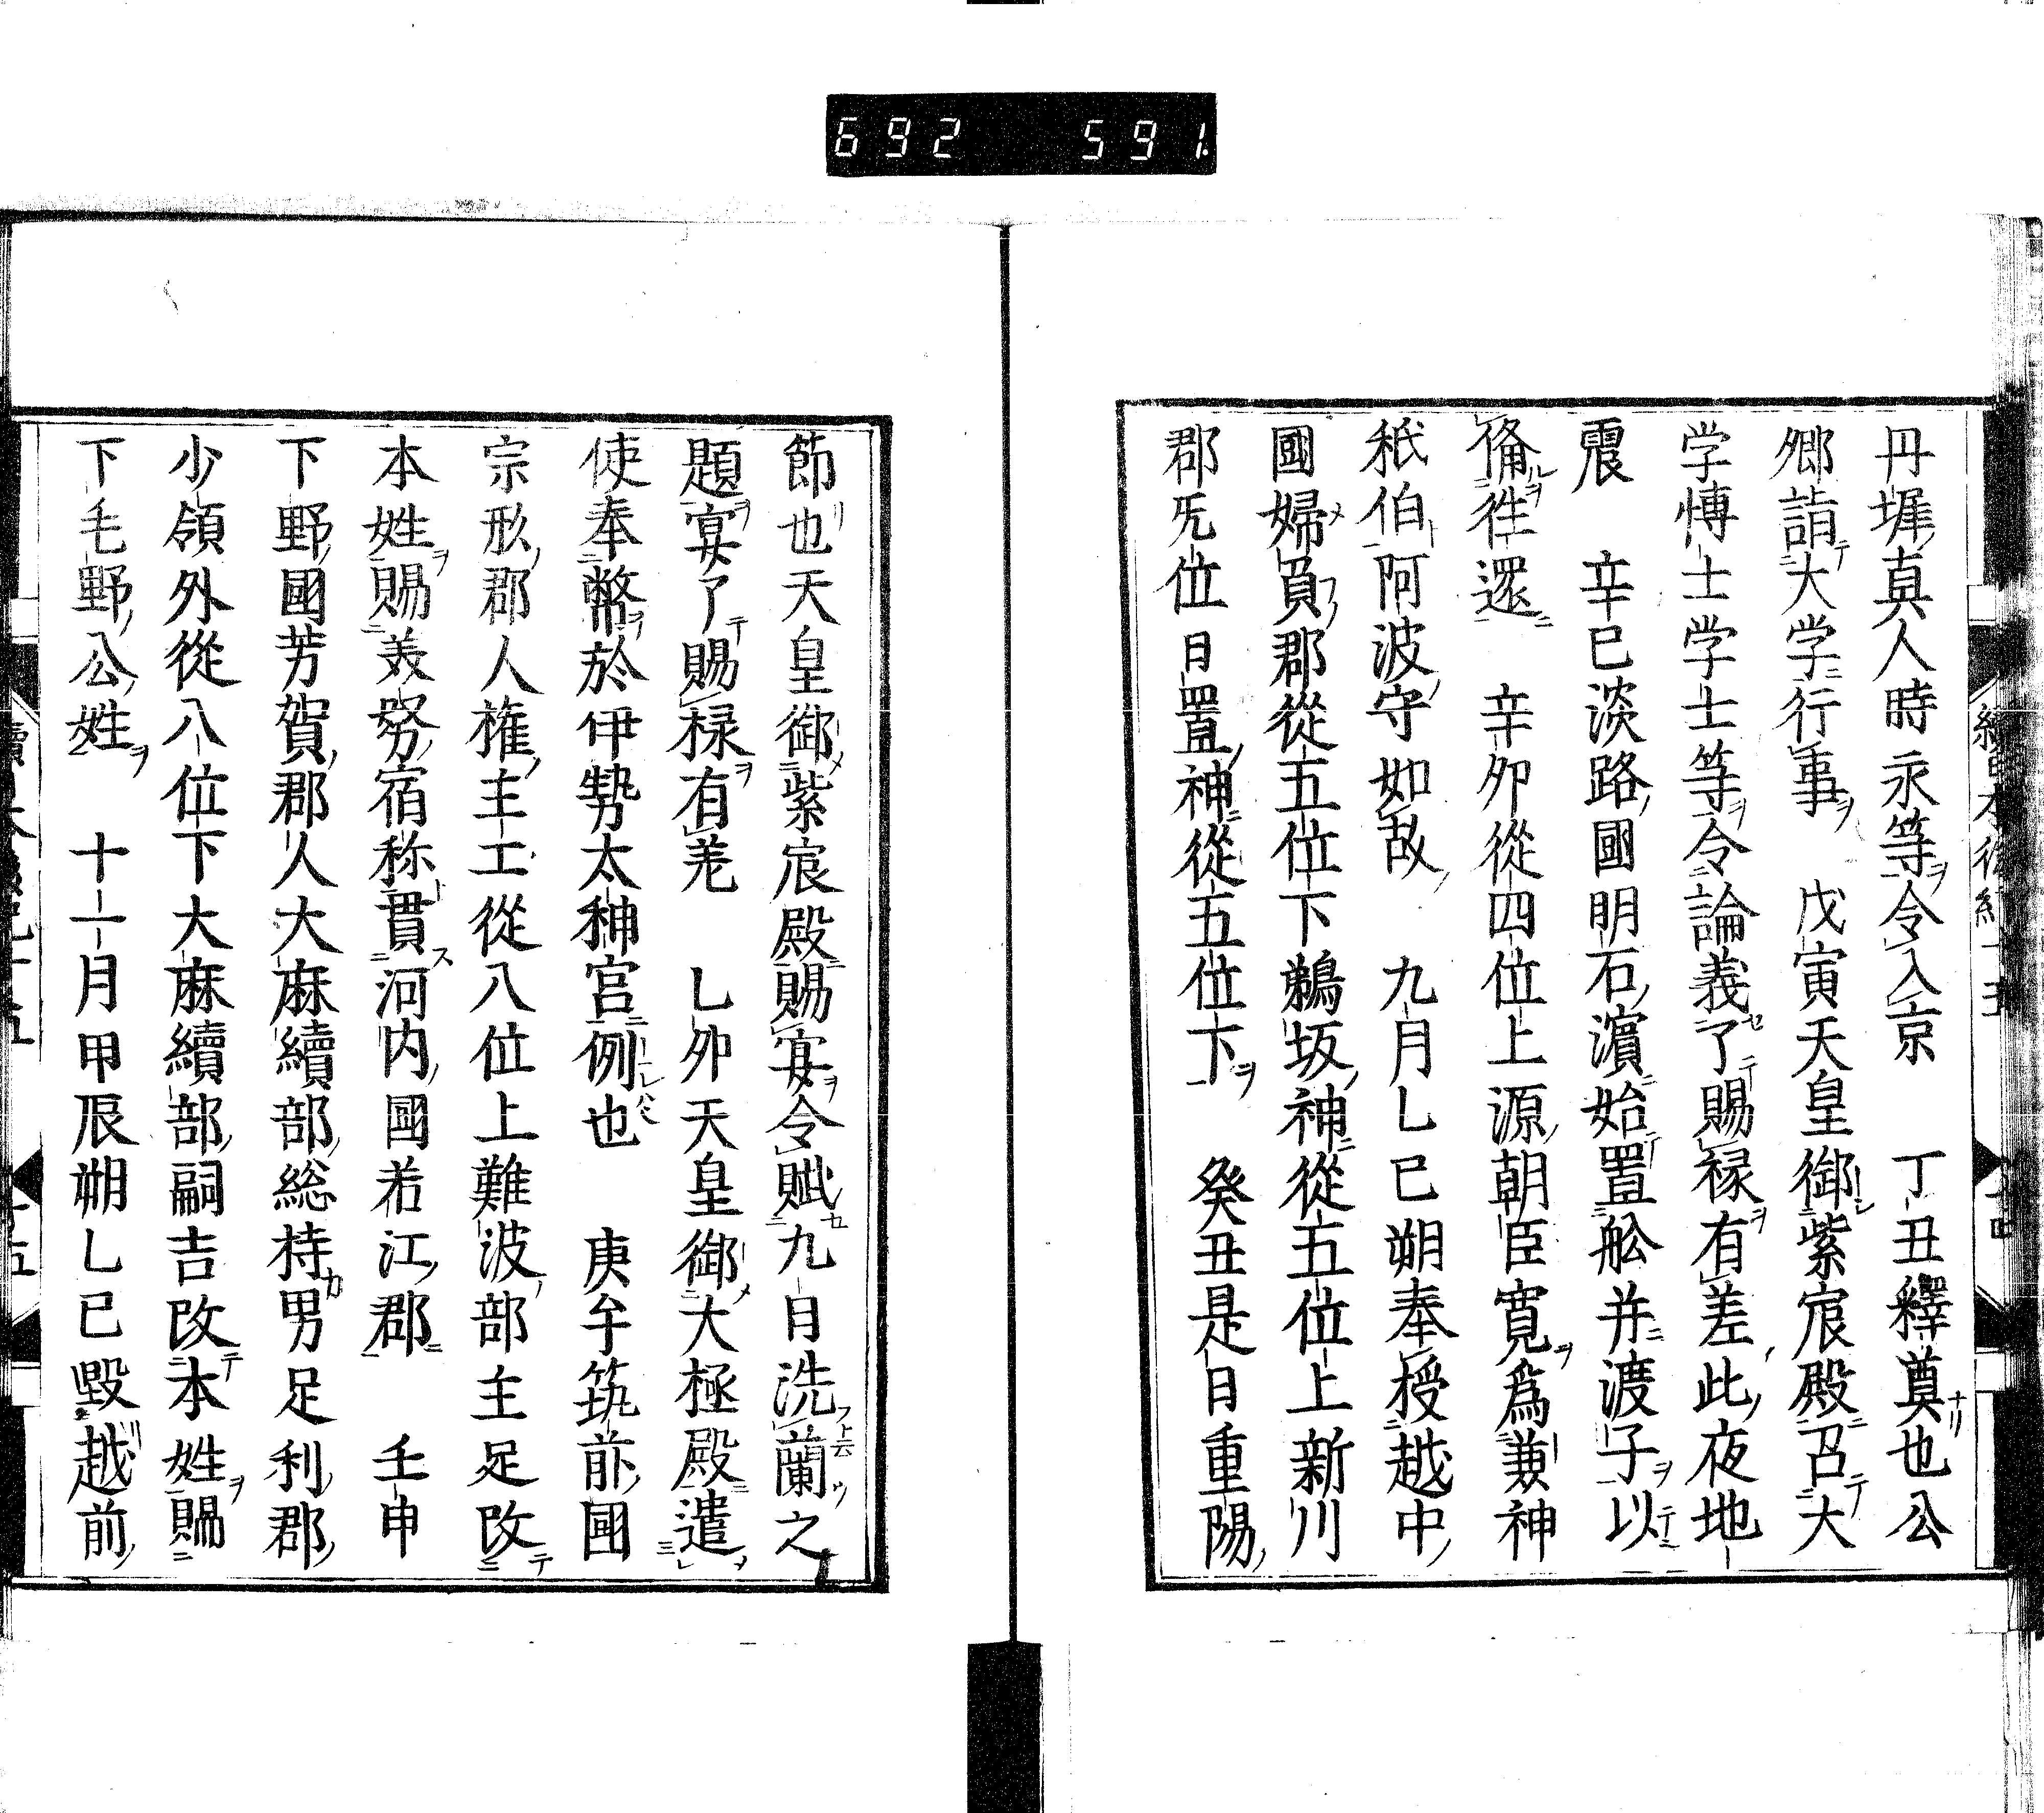 692 591.
丹墀真人時永等令入京 丁丑釋奠也公
卿詣大学行事 戊寅天皇御紫宸殿召大
学博士学士等令論義了賜禄有差此夜地
震 辛巳淡路國明石濵始置舩并渡子以
俻徃還 辛卯從四位上源朝臣寛爲兼神
祇伯阿波守如故 九月乚巳朔奉授越中
國婦負郡從五位下鵜坂神從五位上新川
郡旡位日置神從五位下 癸丑是日重陽
節也天皇御紫宸殿賜宴令賦九日洗蘭之
題宴了賜禄有差 乚夘天皇御大極殿遣
使奉幣於伊勢太神宮例也 庚午筑前國
宗形郡人権主工從八位上難波部主足改
本姓賜美努宿祢貫河内國若江郡 壬申
下野國芳賀郡人大麻續部総持男足利郡
少領外從八位下大麻續部嗣吉改本姓賜
下毛野公姓 十一月甲辰朔乚巳毀越前